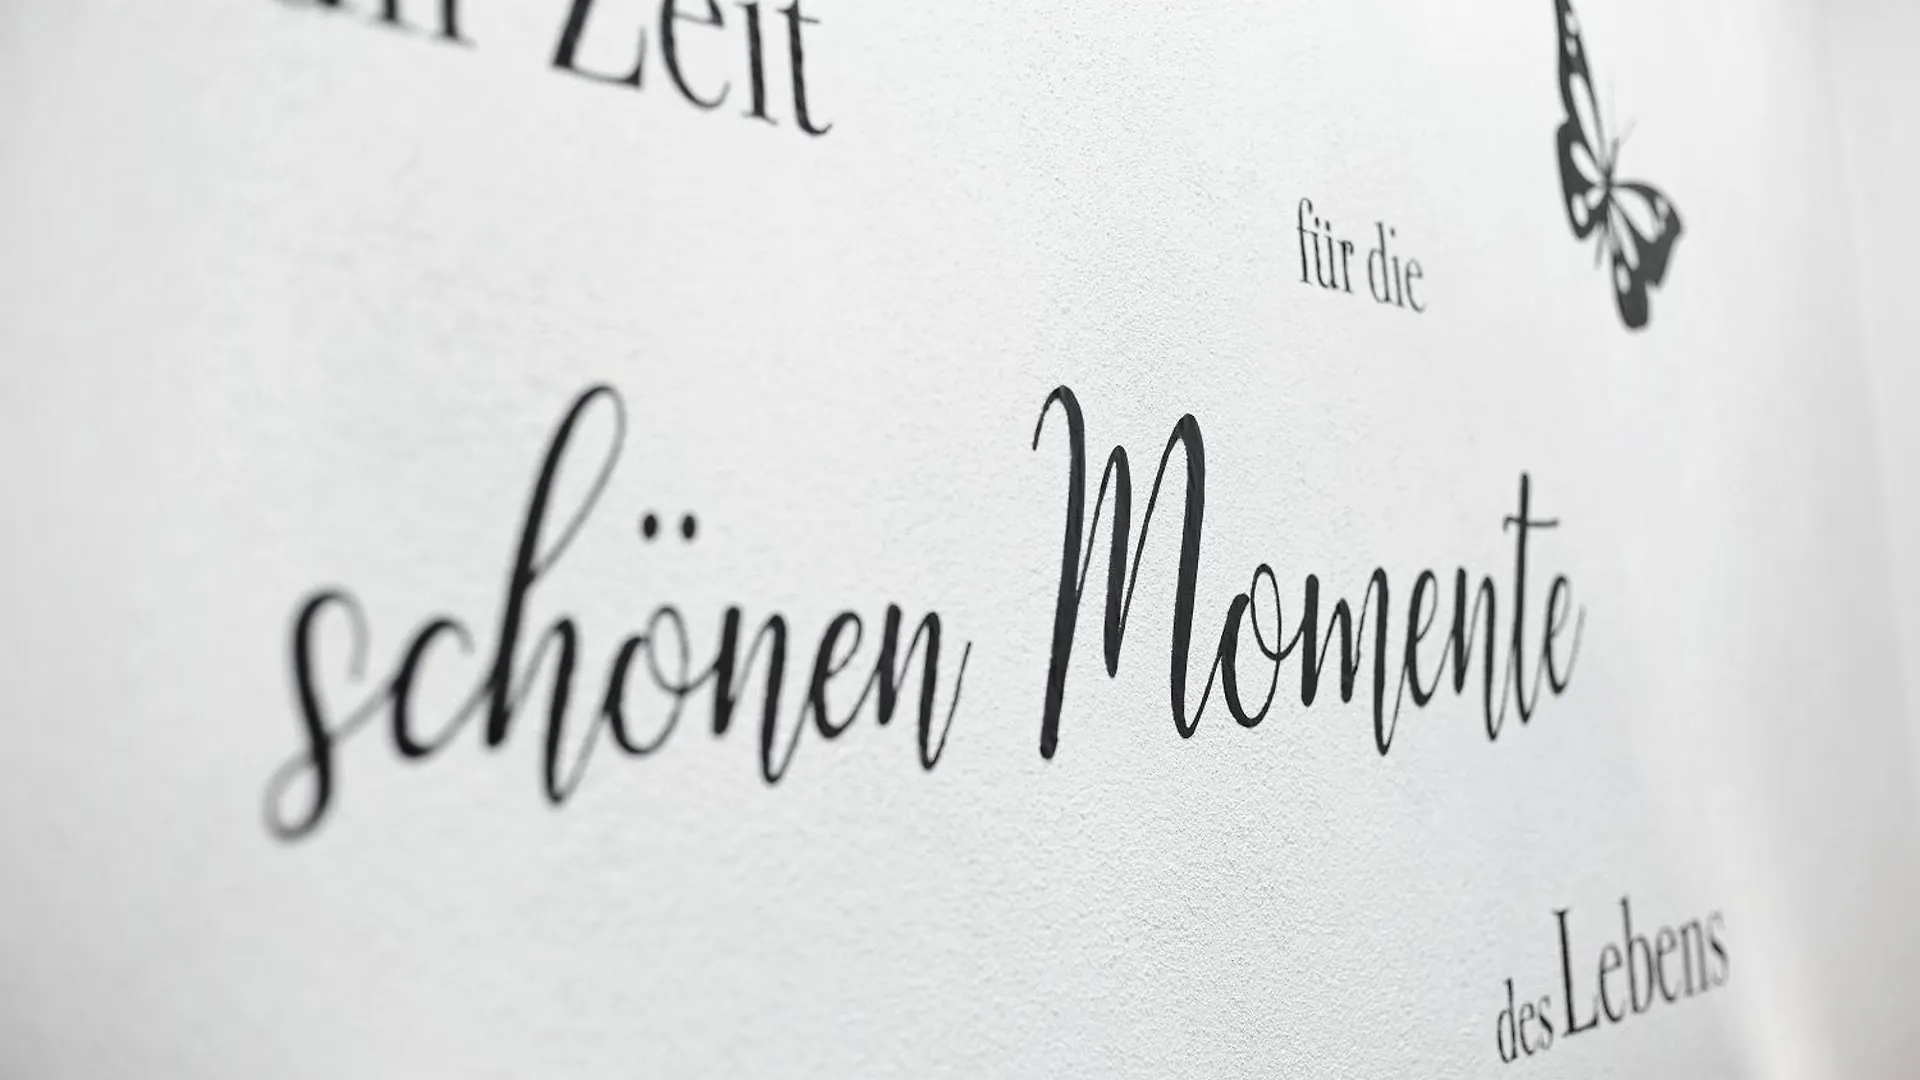 Zeit
für die
schönen Momente
des Lebens